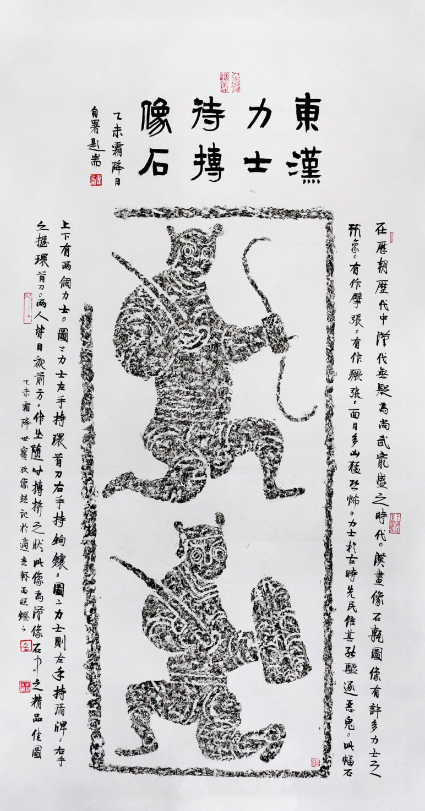 東漢
力士
待搏
像石
乙未霜降日
自署題耑
在歷朝歷代中漢代無疑為尚武最盛之時代。漢畫像石甄圖像有許多力士之
形象。有作擘張。有作蹶張。面目多凶猛恐怖。力士於古時先民信其能驅逐惡鬼。此幅石
上下有兩個力士。圖一力士左手持環首刀右手持鉤鑲。圖二力士則左手持盾牌。右手
之握環首刀。兩人皆目視前方。作出隨時搏擠之狀。此像為漢像石中之精品佳圖
乙未霜降世像題記於適意軒西